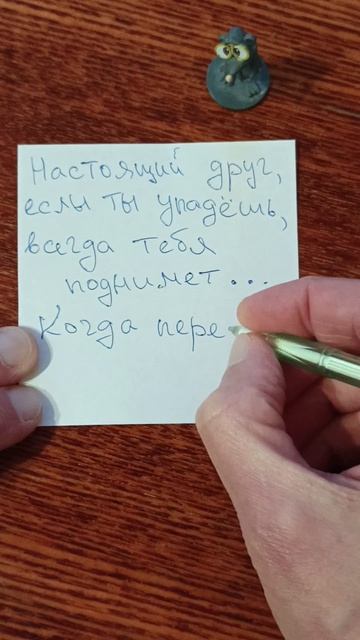 Настоящий друг,
если ты упадёшь,
всегда тебя
поднимет...
Когда пере